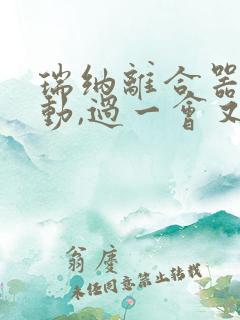 瑞纳離合器
動,過一會又
翁慶
未经同意禁止转载